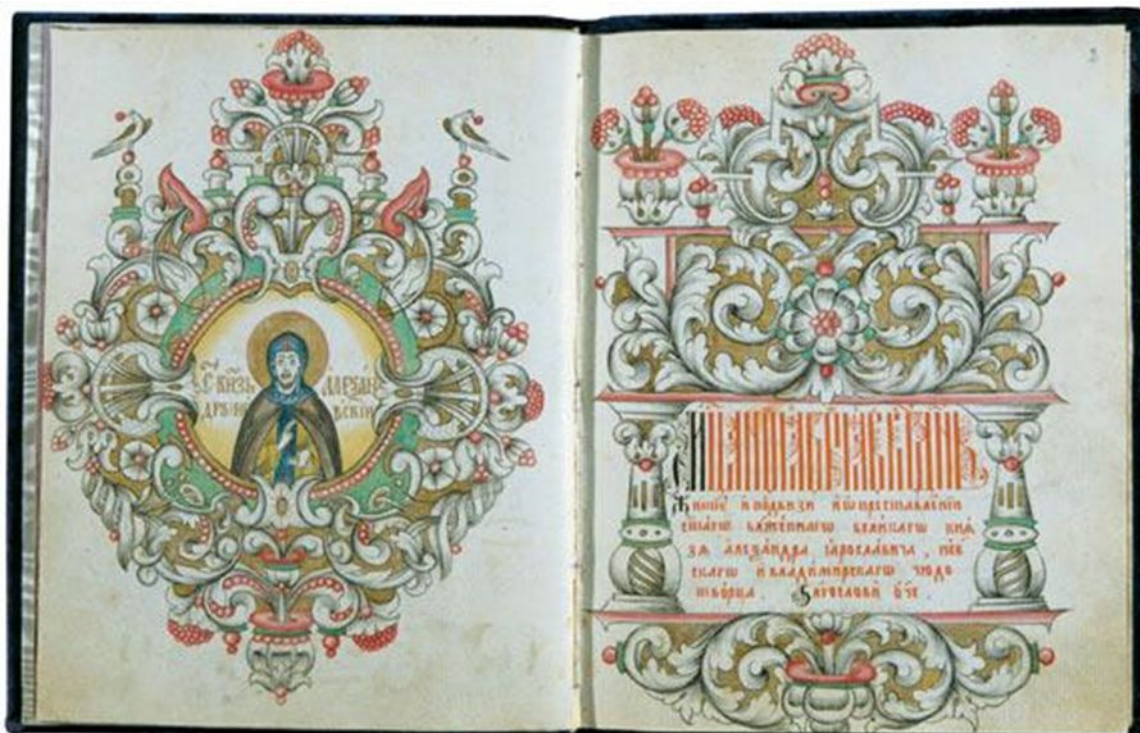 С҃ КНЯЗЬ АЛЕѮАН
ДРЪ НЕ ВСКІИ
2
житїе и подвизи и ѡ преставленїи
ст҃агѡ бл҃жен̾нагѡ великагѡ кня
зя алеѯандра ꙗрославича, нев
скагѡ и владимирскагѡ чюдо
творца. Бл҃гослови ѻ҃че.